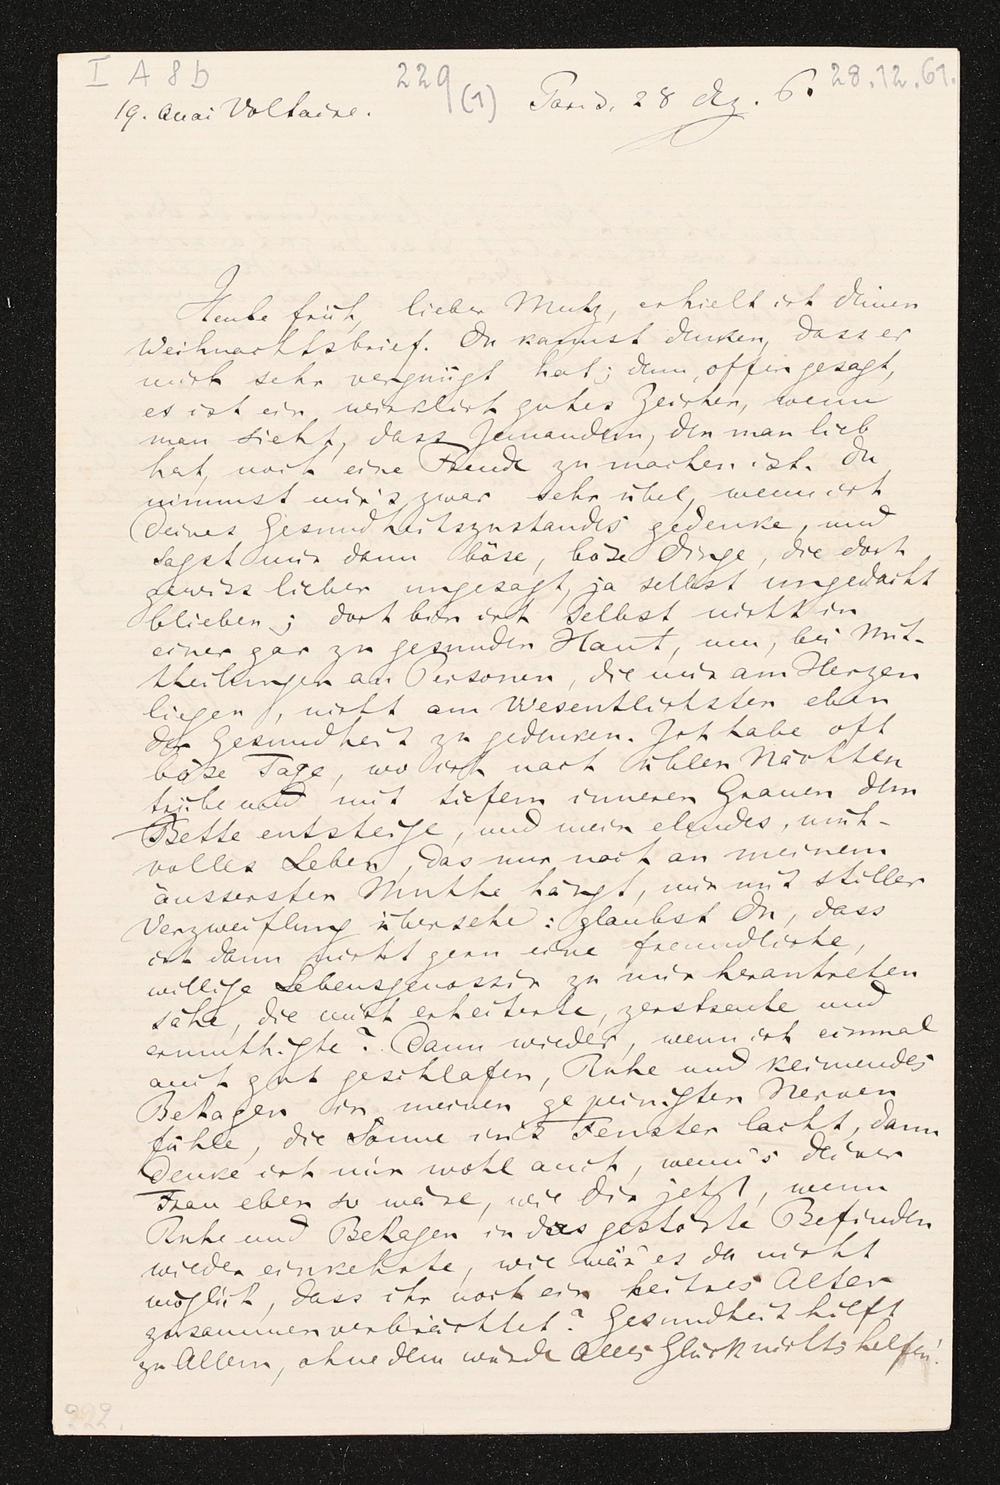 I A 8 b 229 (1) 28.12.61.
19. Quai Voltaire. Paris, 28 Dez. 61
Heute früh, lieber Mutz, erhielt ich deinen
Weihnachtsbrief. Du kannst denken, dass er
mich sehr vergnügt hat; denn, offen gesagt,
es ist ein wirklich gutes Zeichen, wenn
man sieht, dass Jemandem, den man lieb
hat, noch eine Freude zu machen ist. Du
nimmst mir's zwar sehr übel, wenn ich
Deines Gesundheitszustandes gedenke, und
sagst mir dann böse, böse Dinge, die doch
gewiss lieber ungesagt, ja selbst ungedacht
blieben; doch bin ich selbst nicht in
einer gar zu gesunden Haut, um, bei Mit-
theilungen an Personen, die mir am Herzen
liegen, nicht am Wesentlichsten eben
der Gesundheit zu gedenken. Ich habe oft
böse Tage, wo ich nach üblen Nächten
trübe und mit tiefem inneren Grauen dem
Bette entsteige, und mein elendes, müh-
volles Leben, das nur noch an meinem
äussersten Muthe hängt, mir mit stiller
Verzweiflung übersehe: glaubst Du, dass
ich dann nicht gern eine freundliche,
willige Lebensgenossin zu mir herantreten
sähe, die mich erheiterte, zerstreute und
ermuthigte? Dann wieder, wenn ich einmal
auch gut geschlafen, Ruhe und keimendes
Behagen in meinen gepeinigten Nerven
fühle, die Sonne in's Fenster lacht, dann
denke ich mir wohl auch, wenn's deiner
Frau eben so wäre, wie dir jetzt, wenn
Ruhe und Behagen in das gestörte Befinden
wieder einkehrte, wie wär' es da nicht
möglich, dass ihr noch ein heitres Alter
zusammen verbrächtet? Gesundheit hilft
zu Allem, ohne dem würde alles Glück nichts helfen!
222.